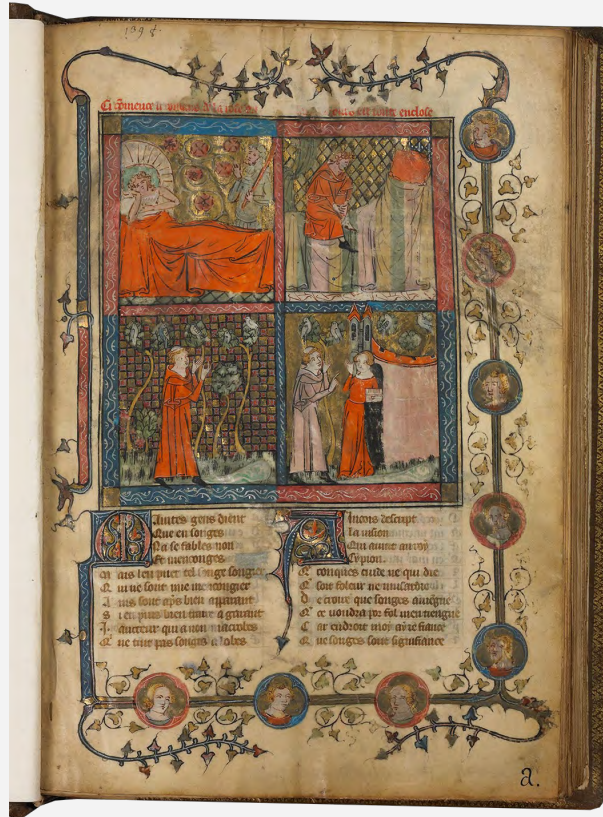 1398.
Ci commence li romans de la rose
ou lart damours est toute enclose
Maintes gens dient
Que en songes
Na se fables non
Et menconges
Mais len puet tel songe songier
Qui ne sont mie mensongier
Ains sont apres bien apparant
Si en puis bien traire a garant
Macrobes
Qui ne tint pas songes a lobes
Aincois descript
la vision
Qui avint au roy
Cypion
Quiconques cuide ne qui die
soit foleur
De croire que songes aviegne
Qui ce vouldra por fol men tiengne
Car endroit moy ay je fiance
Que songes sont signifiance
a.